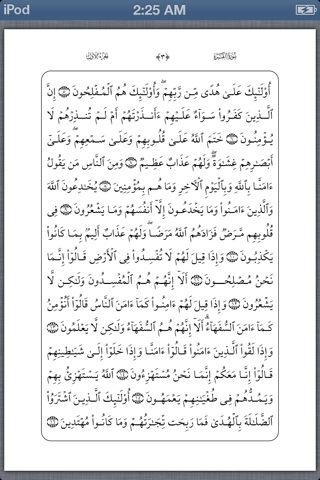 iPod 2:25 AM
سُورَةُ البَقَرَةِ ﴿٣﴾ الجزء الأول
أُوْلَٰٓئِكَ عَلَىٰ هُدًى مِّن رَّبِّهِمْ ۖ وَأُوْلَٰٓئِكَ هُمُ ٱلْمُفْلِحُونَ ۝ إِنَّ
ٱلَّذِينَ كَفَرُوا۟ سَوَآءٌ عَلَيْهِمْ ءَأَنذَرْتَهُمْ أَمْ لَمْ تُنذِرْهُمْ لَا
يُؤْمِنُونَ ۝ خَتَمَ ٱللَّهُ عَلَىٰ قُلُوبِهِمْ وَعَلَىٰ سَمْعِهِمْ ۖ وَعَلَىٰٓ
أَبْصَٰرِهِمْ غِشَٰوَةٌ ۖ وَلَهُمْ عَذَابٌ عَظِيمٌ ۝ وَمِنَ ٱلنَّاسِ مَن يَقُولُ
ءَامَنَّا بِٱللَّهِ وَبِٱلْيَوْمِ ٱلْءَاخِرِ وَمَا هُم بِمُؤْمِنِينَ ۝ يُخَٰدِعُونَ ٱللَّهَ
وَٱلَّذِينَ ءَامَنُوا۟ وَمَا يَخْدَعُونَ إِلَّآ أَنفُسَهُمْ وَمَا يَشْعُرُونَ ۝ فِى
قُلُوبِهِم مَّرَضٌ فَزَادَهُمُ ٱللَّهُ مَرَضًا ۖ وَلَهُمْ عَذَابٌ أَلِيمٌۢ بِمَا كَانُوا۟
يَكْذِبُونَ ۝ وَإِذَا قِيلَ لَهُمْ لَا تُفْسِدُوا۟ فِى ٱلْأَرْضِ قَالُوٓا۟ إِنَّمَا
نَحْنُ مُصْلِحُونَ ۝ أَلَآ إِنَّهُمْ هُمُ ٱلْمُفْسِدُونَ وَلَٰكِن لَّا
يَشْعُرُونَ ۝ وَإِذَا قِيلَ لَهُمْ ءَامِنُوا۟ كَمَآ ءَامَنَ ٱلنَّاسُ قَالُوٓا۟ أَنُؤْمِنُ
كَمَآ ءَامَنَ ٱلسُّفَهَآءُ ۗ أَلَآ إِنَّهُمْ هُمُ ٱلسُّفَهَآءُ وَلَٰكِن لَّا يَعْلَمُونَ ۝
وَإِذَا لَقُوا۟ ٱلَّذِينَ ءَامَنُوا۟ قَالُوٓا۟ ءَامَنَّا وَإِذَا خَلَوْا۟ إِلَىٰ شَيَٰطِينِهِمْ
قَالُوٓا۟ إِنَّا مَعَكُمْ إِنَّمَا نَحْنُ مُسْتَهْزِءُونَ ۝ ٱللَّهُ يَسْتَهْزِئُ بِهِمْ
وَيَمُدُّهُمْ فِى طُغْيَٰنِهِمْ يَعْمَهُونَ ۝ أُوْلَٰٓئِكَ ٱلَّذِينَ ٱشْتَرَوُا۟
ٱلضَّلَٰلَةَ بِٱلْهُدَىٰ فَمَا رَبِحَت تِّجَٰرَتُهُمْ وَمَا كَانُوا۟ مُهْتَدِينَ ۝